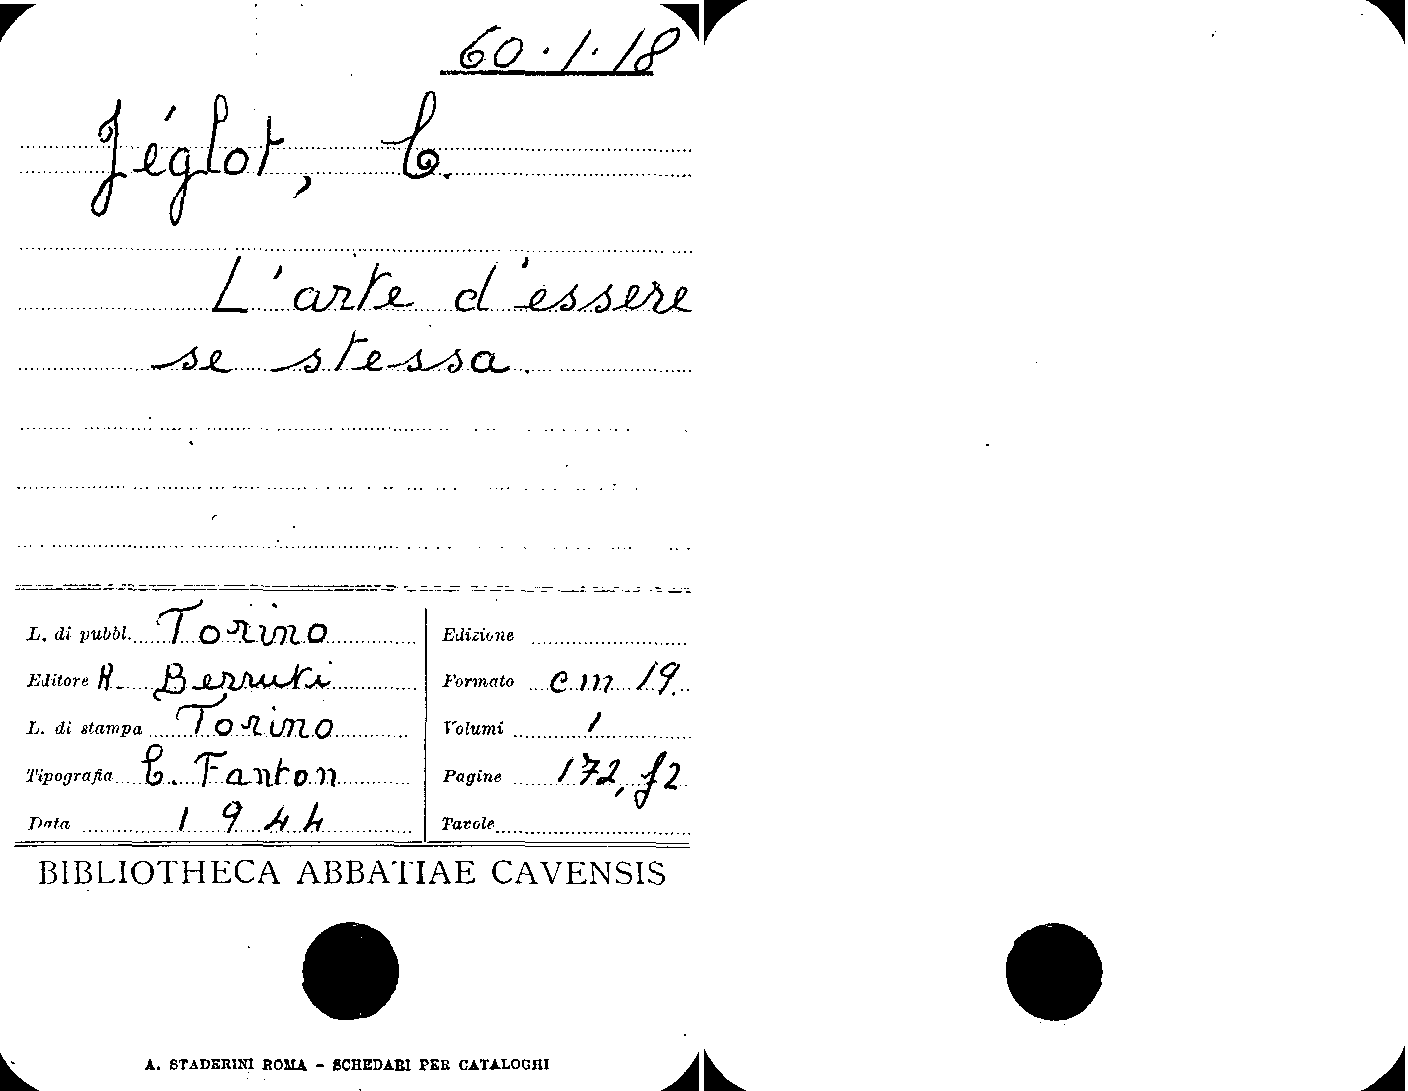 60.1.18
Jéglot, C.
L'arte d'essere
se stessa.
L. di pubbl. Torino
Editore R. Berruti
L. di stampa Torino
Tipografia C. Fanton
Data 1944
Edizione
Formato cm 19.
Volumi 1
Pagine 172, f2
Tavole
BIBLIOTHECA ABBATIAE CAVENSIS
A. STADERINI ROMA - SCHEDARI PER CATALOGHI